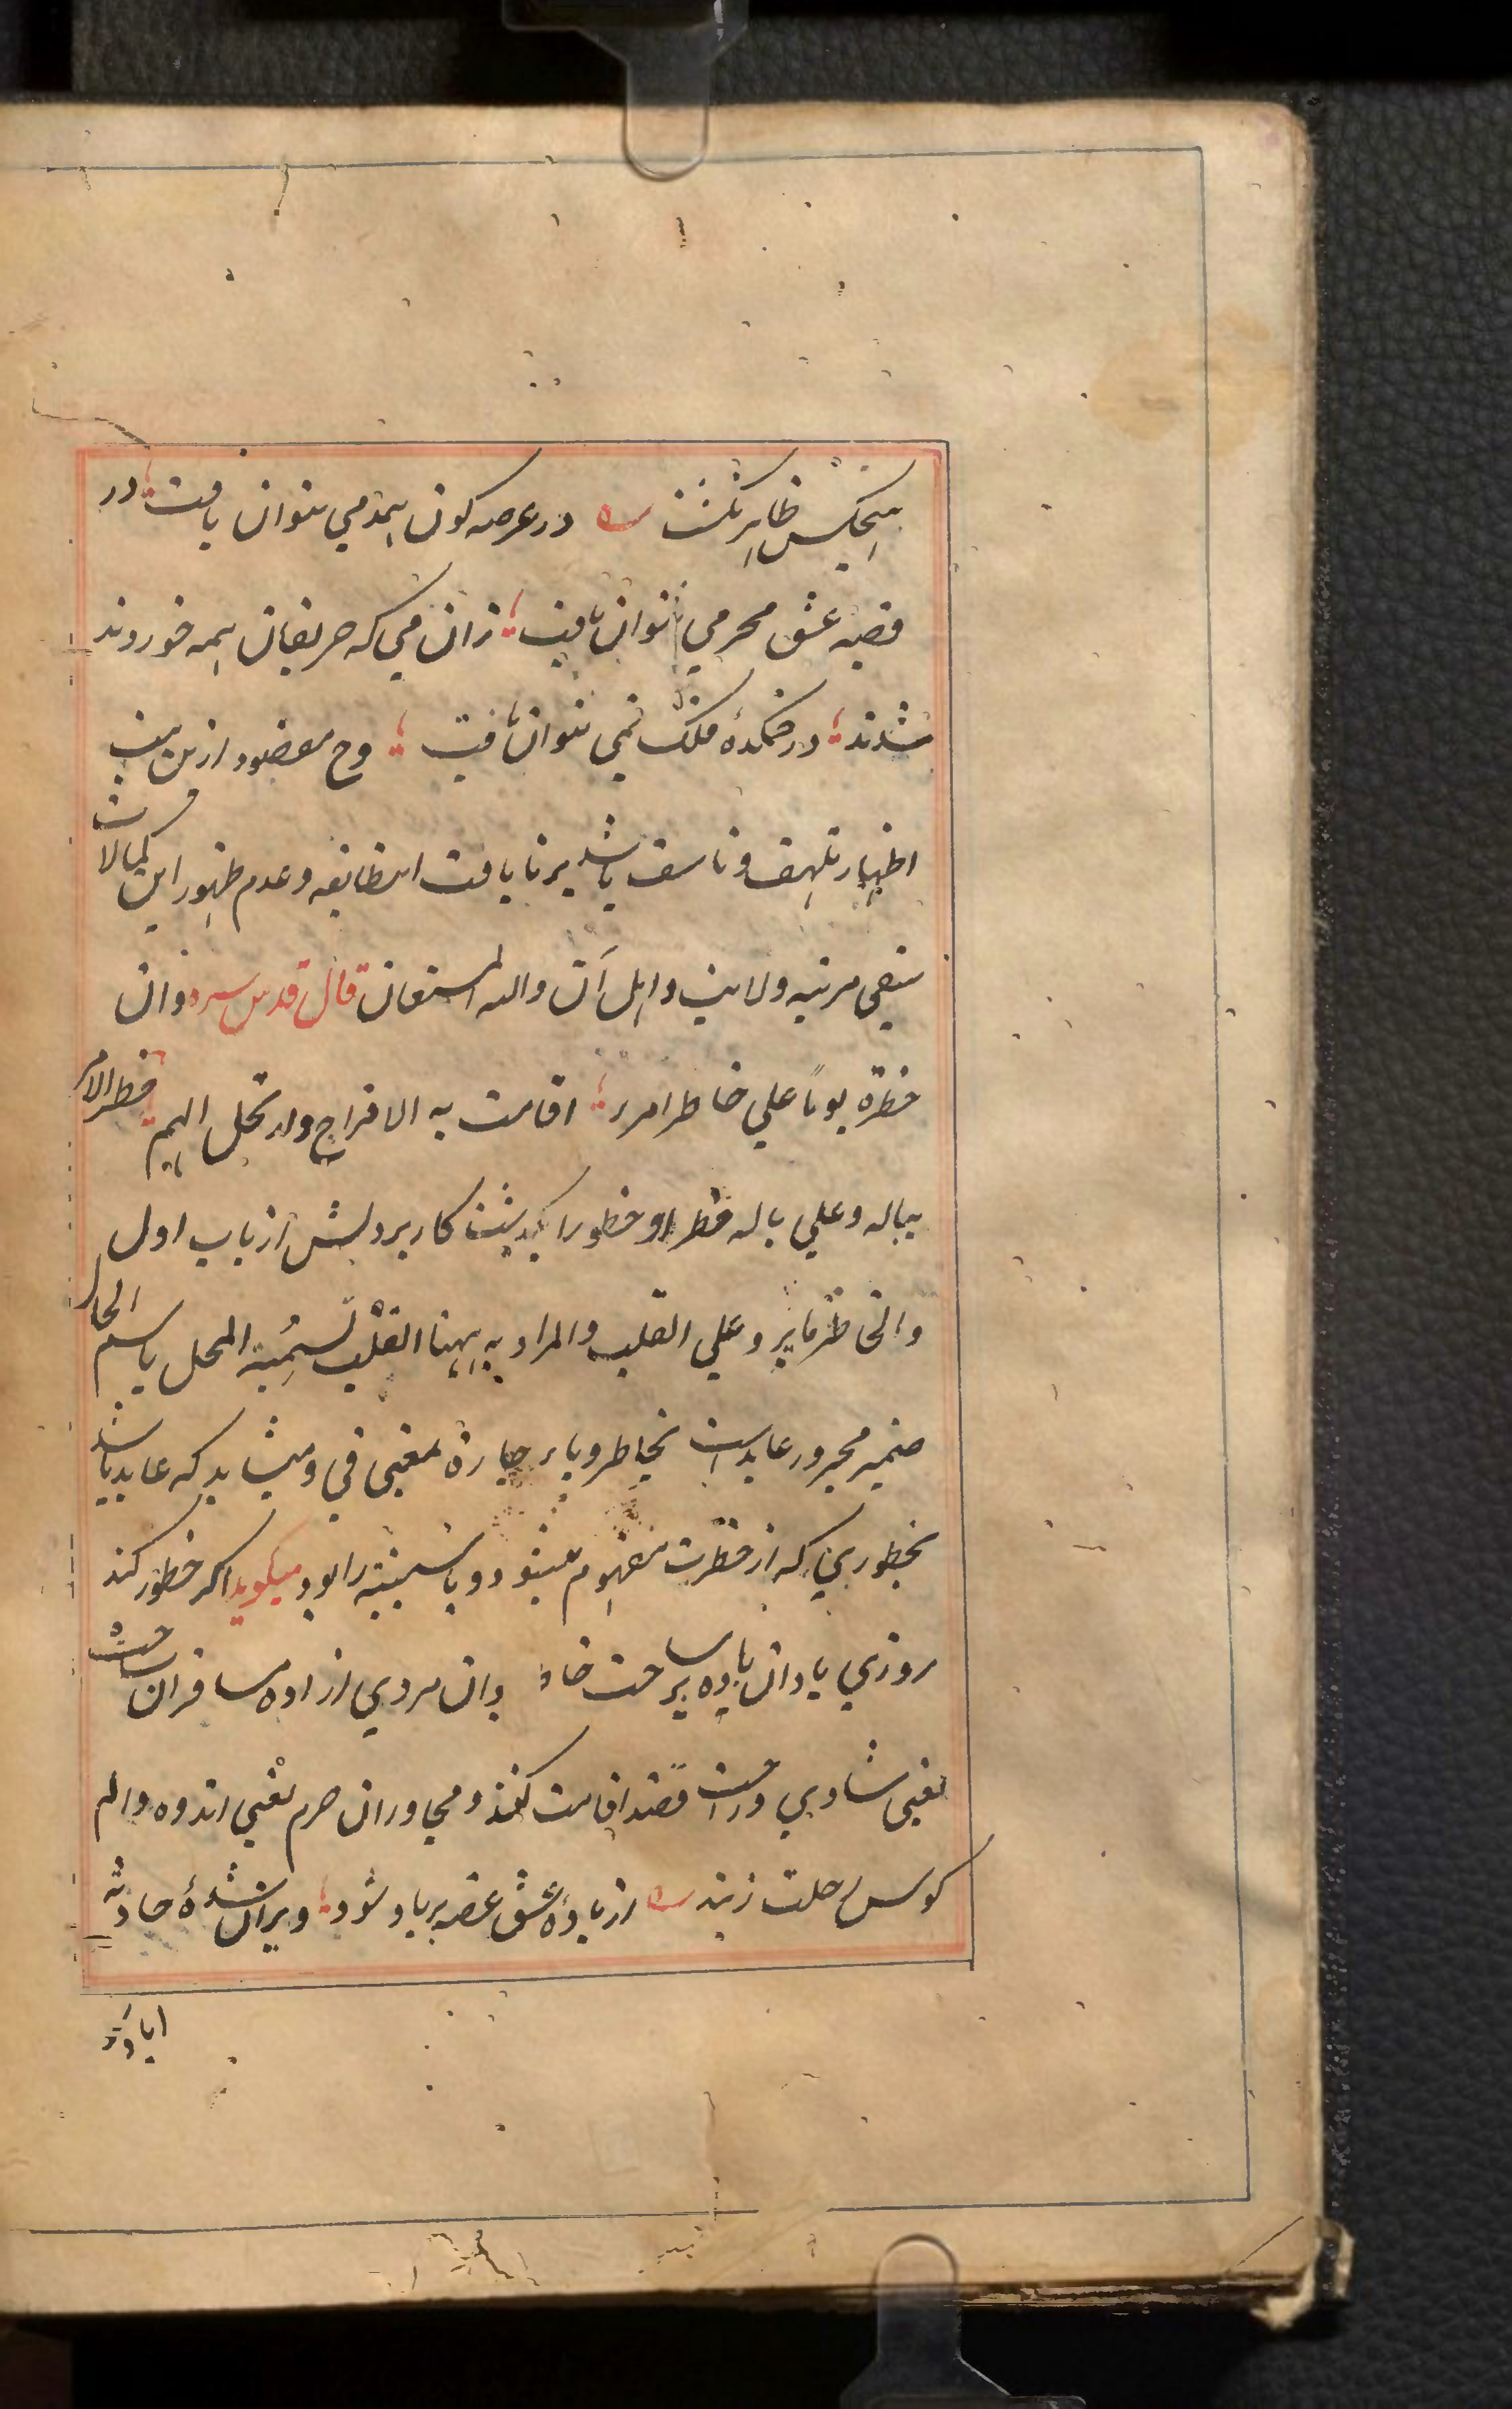 هیچکس ظاهر نگشت ـه در عرصه کون همدمی نتوان یافت؛ در
قصه عشق محرمی نتوان یافت؛ زان می که حریفان همه خوردند
شدند؛ در خمکدهٔ ملک نمی نتوان یافت؛ وح مقصود ازین بیت
اظهار تلهف و تاسف باشد بر نا یافت اینطایفه و عدم ظهور این کمالات
بنفی مرتبه ولایت و اهل آن والله المستعان قال قدس سره وان
خطرت یوماً علی خاطر امرء؛ اقامت به الافراح وارتحل الهم؛ خطر الامر
بباله وعلی باله خطرا و خطورا بگذشت کار بر دلش از باب اول
والخاطر ما یرد علی القلب والمراد به ههنا القلب تسمیة المحل باسم الحال
ضمیر مجرور عاید است بخاطر و باء جاره بمعنی فی و میشاید که عاید باشد
بخطوری که از خطرت مفهوم میشود و با سببیه را بود میکوید اکر خطور کند
روزی یاد آن باده بر ساحت خاطر وان مردی ازاده مسافران ساحت
یعنی شادی و راحت قصد اقامت کنند و مجاوران حرم یعنی اندوه و الم
کوس رحلت زنند ـه از بادهٔ عشق غصه بر باد شود؛ ویران شدهٔ حادثه
اباد شود